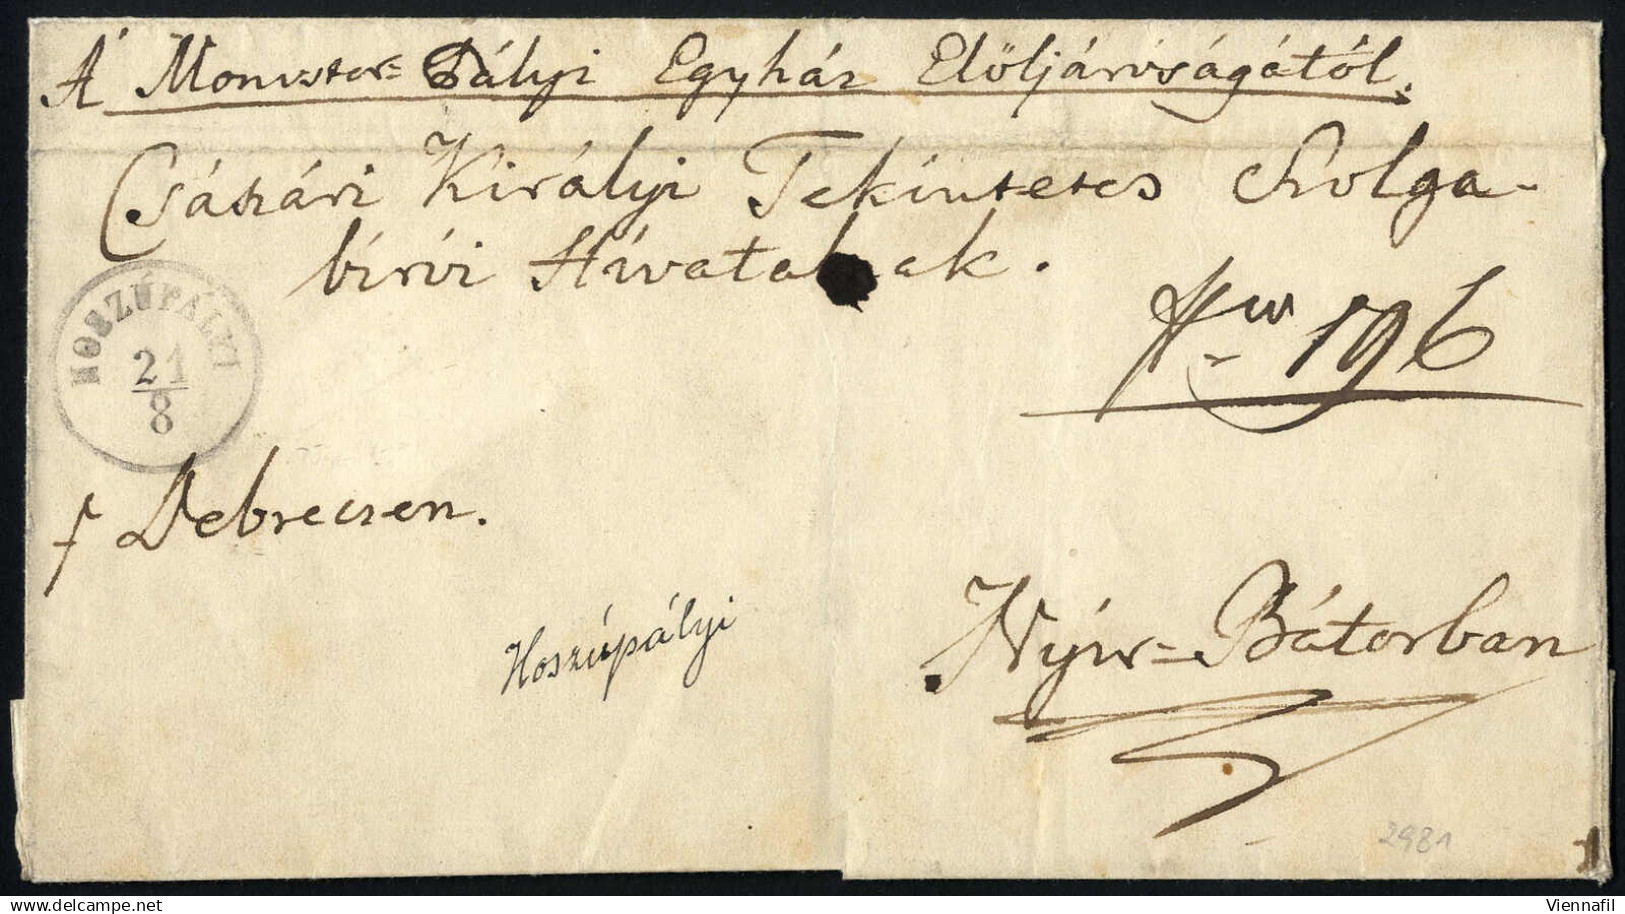 A' Monostor= Pályi Egyház Elöljáróságától.
Császári Királyi Tekintetes Szolga-
bírói Hivatalnak.
HOSZÚPÁLYI
21/8
196
Debreczen.
Hoszúpályi
Nyír=Bátorban
2981
Viennafil